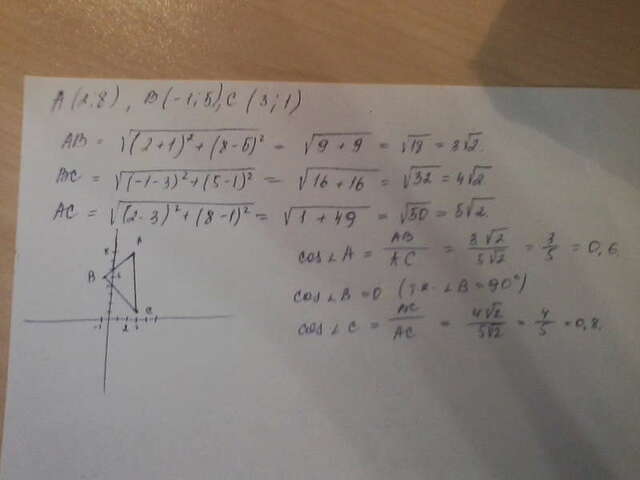 A (2;8), B(-1;5), C (3;1)
AB = √(2+1)² + (8-5)² = √9+9 = √18 = 3√2.
BC = √(-1-3)² + (5-1)² = √16+16 = √32 = 4√2
AC = √(2-3)² + (8-1)² = √1+49 = √50 = 5√2.
cos∠A = AB/AC = 3√2/5√2 = 3/5 = 0,6.
cos∠B = 0 (т.к. ∠B = 90°)
cos∠C = BC/AC = 4√2/5√2 = 4/5 = 0,8.
A
B
C
-1 2 3